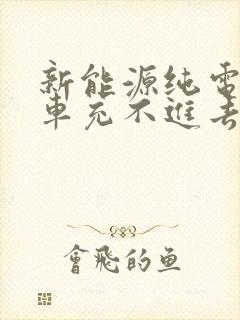 新能源纯電
車充不進去
會飛的鱼